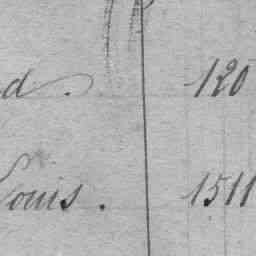 d. 120
Louis. 1511